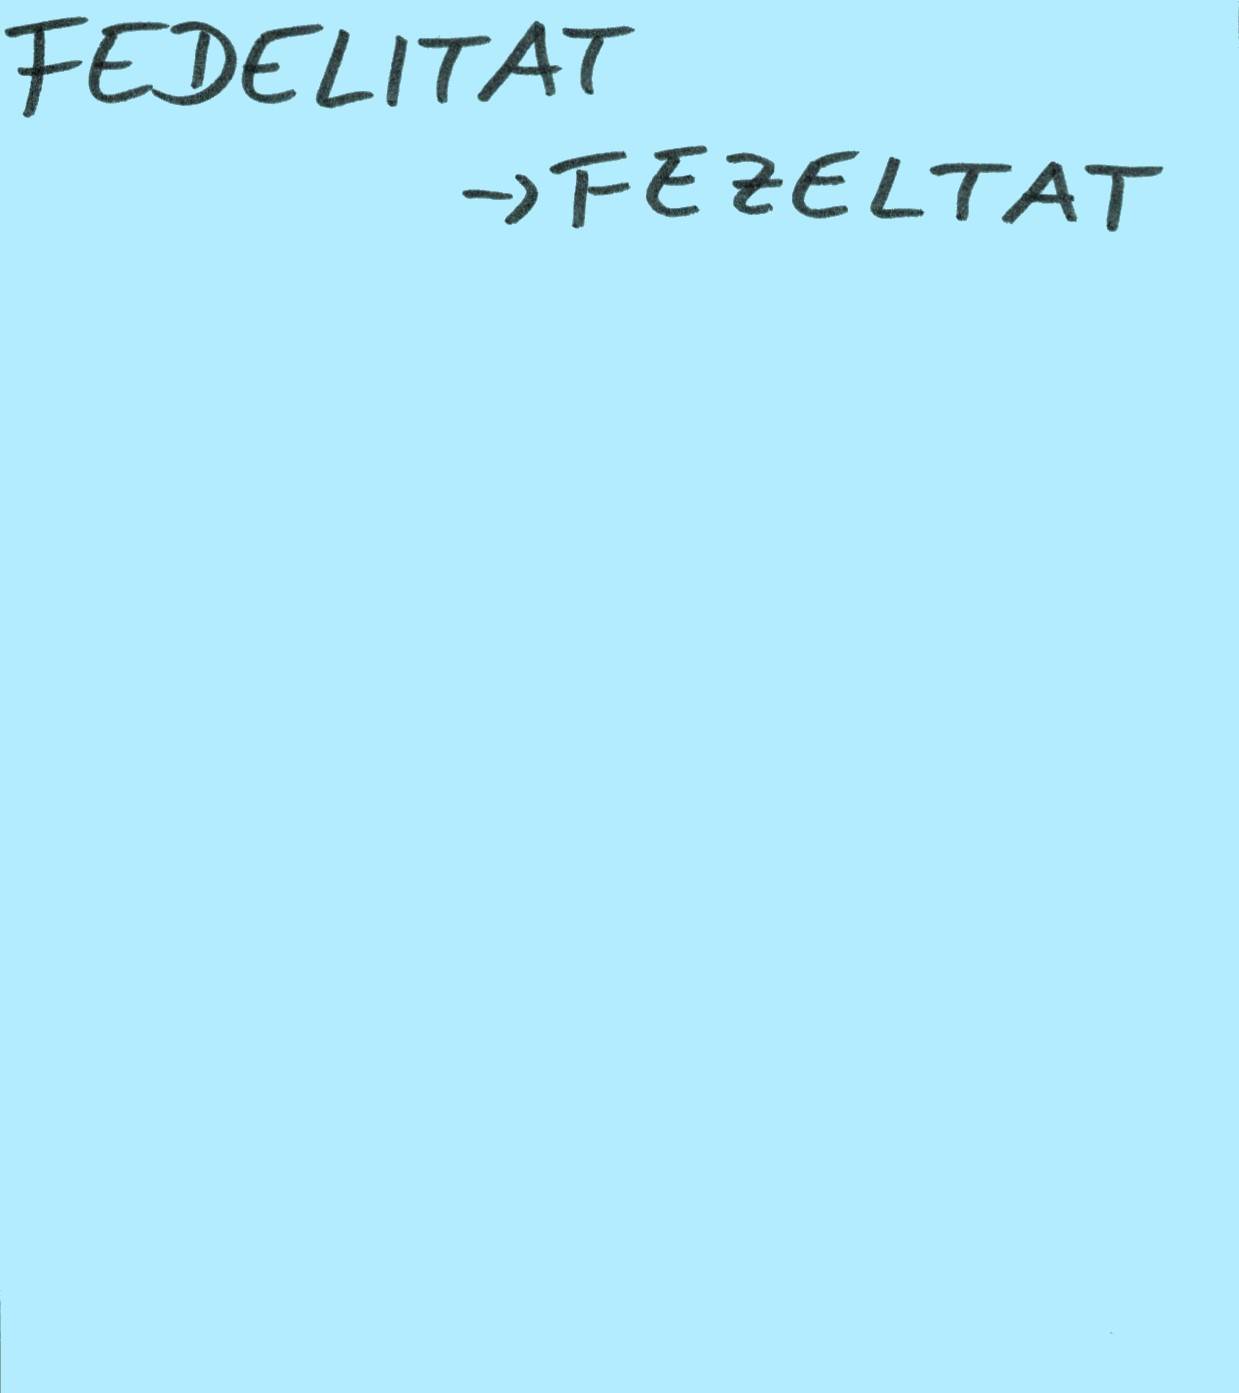 FEDELITAT
→FEZELTAT